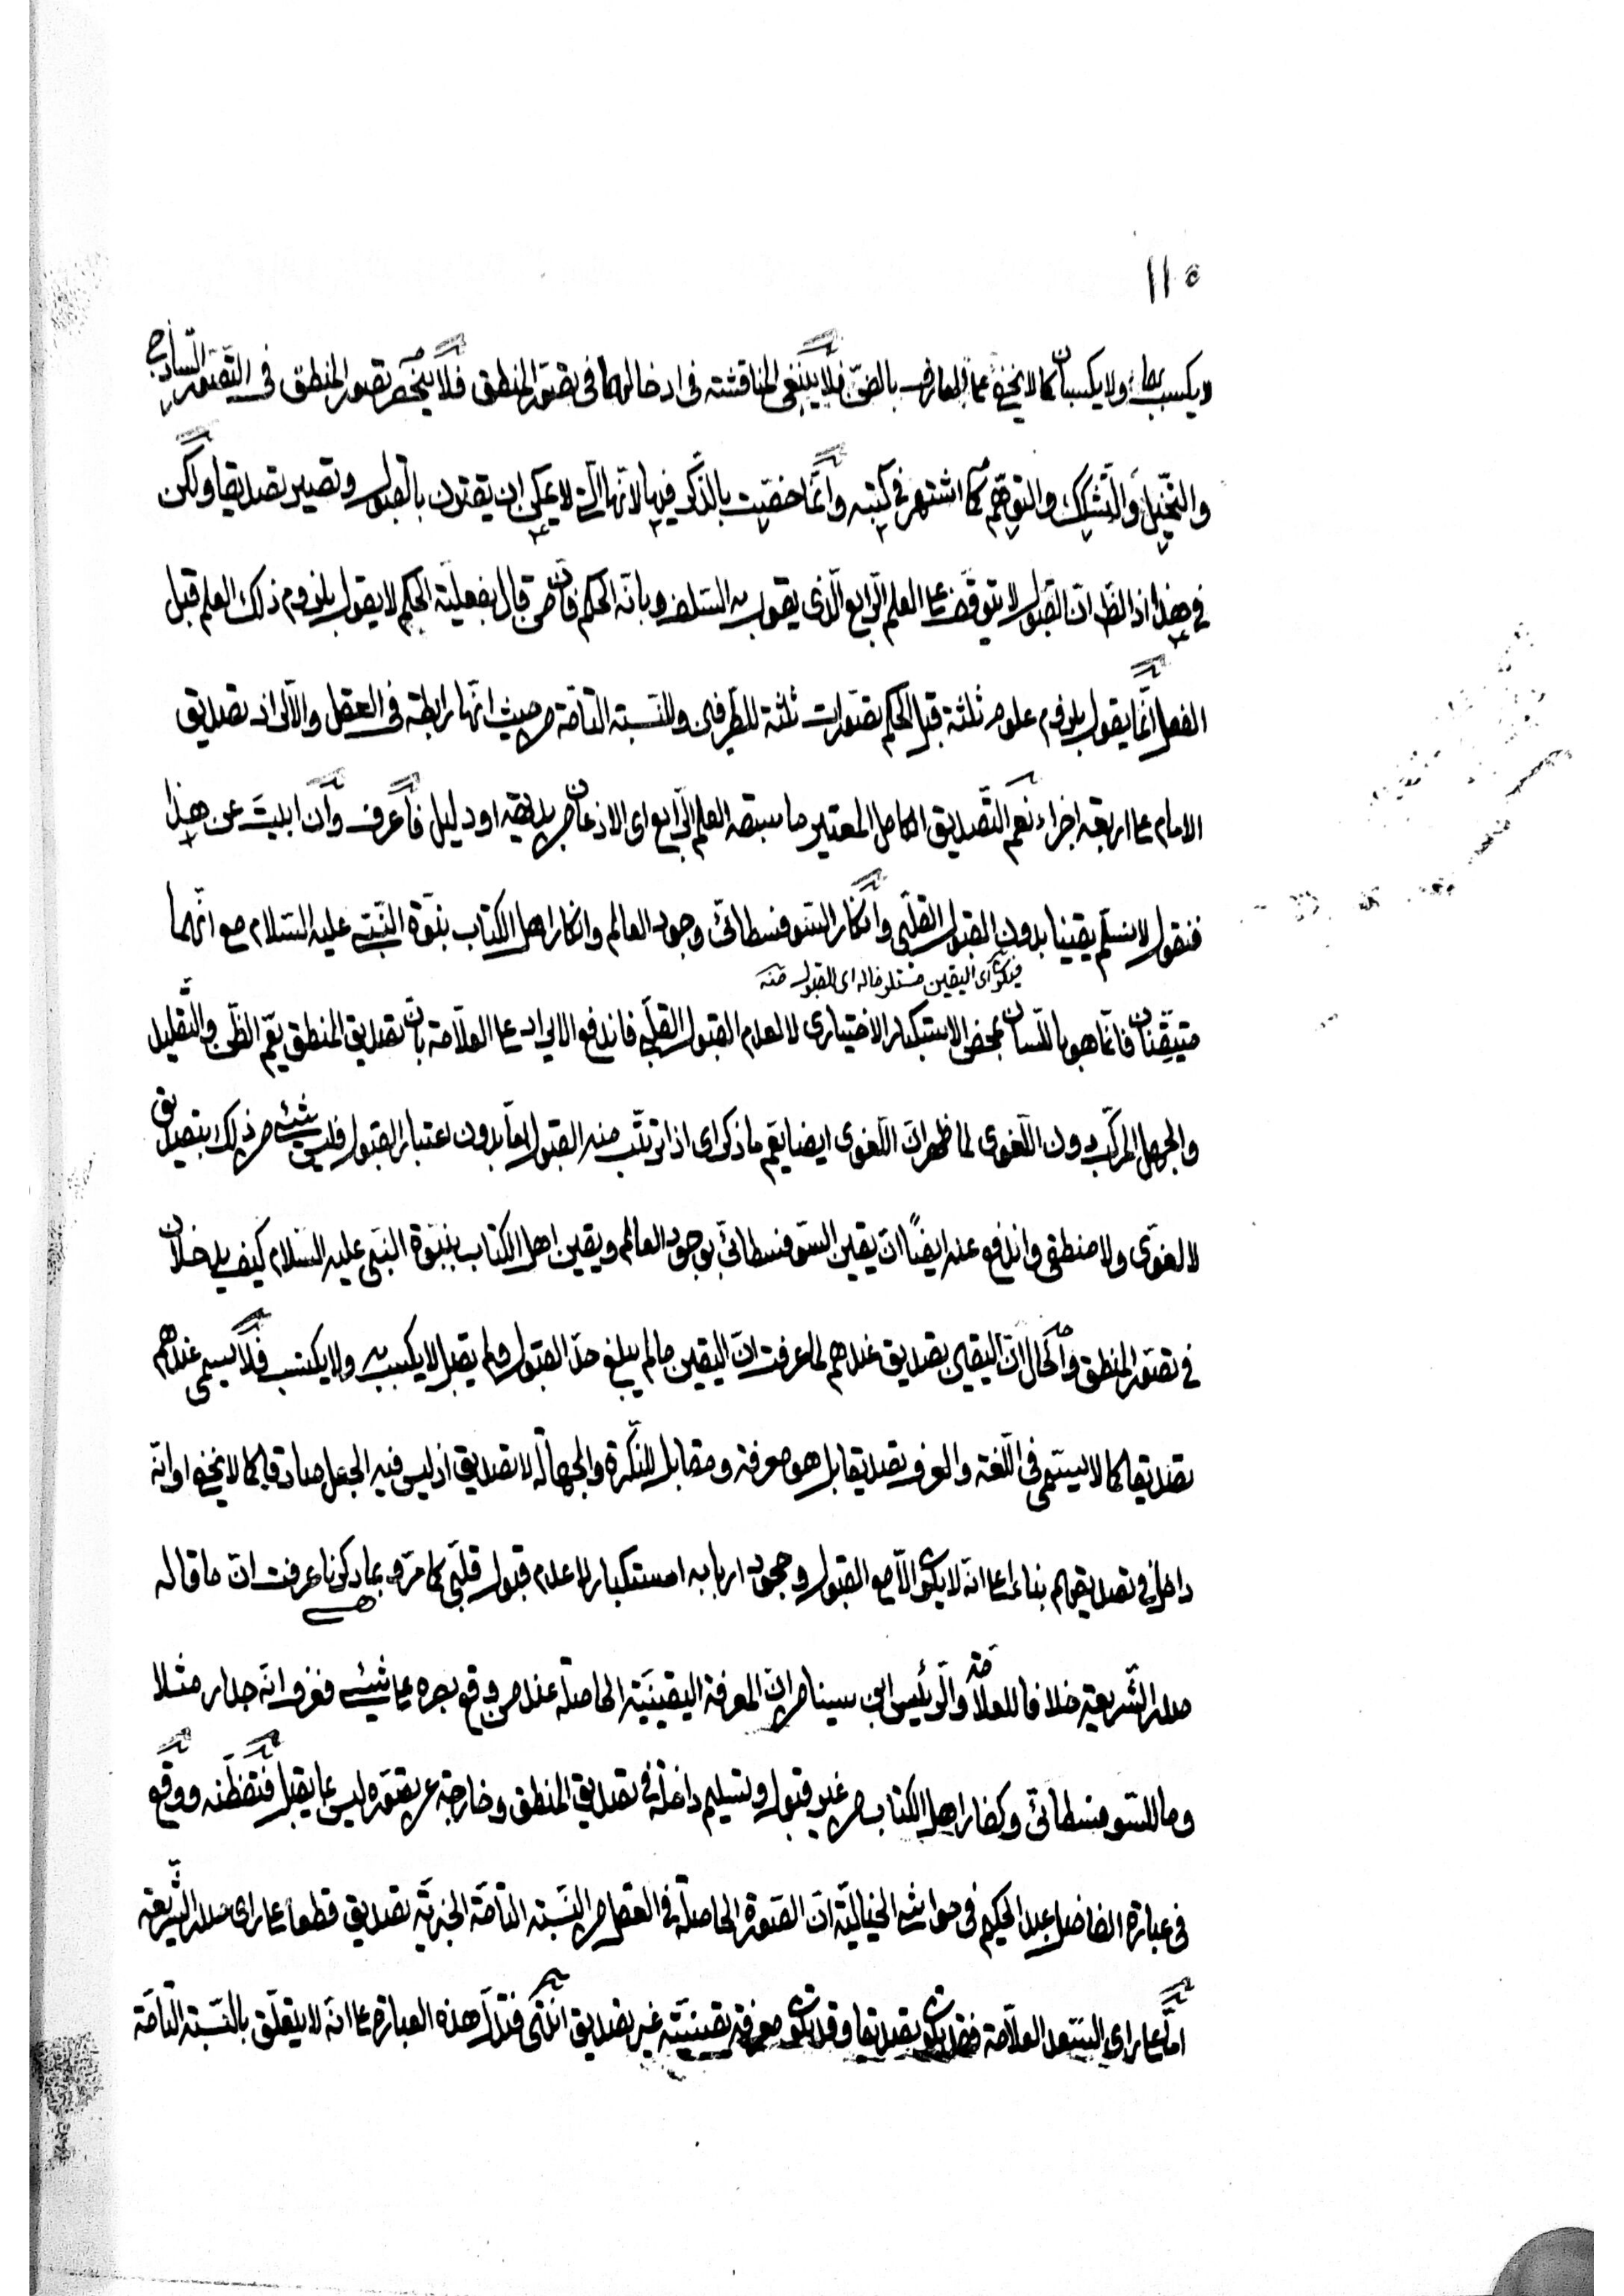 ١١٥
لا يكسب بهما ولا يكسبان كما لا يخفى على العارف بالفن فلا ينبغي المناقشة في ادخالهما في تصور المنطق فلا ينحصر تصور المنطق في التصور الساذج
والتخيل والتشكك والتوهم كما اشتهر في كتبه وانما خصت بالذكر فيها لانها التي لا يمكن ان يقترن بالقبول وتصير تصديقا ولكن
في هذا اذ الظ ان القبول لا يتوقف على العلم الرابع الذي يقول به السلف وبانه الحكم فان من قال بفعلية الحكم لا يقول بلزوم ذلك العلم قبل
الفعل انما يقول بلزوم علوم ثلثة قبل الحكم تصورات ثلثة للطرفين وللنسبة التامة من حيث انها رابطة في العقل والا لزاد تصديق
الامام على اربعة اجزاء نعم التصديق الكامل المعتبر ما سبقه العلم الرابع اى الاذعان من بديهة او دليل فاعرف وان ابيت عن هذا
فنقول لا نسلم يقينا بدون القبول القلبي وانكار السوفسطائي وجود العالم وانكار اهل الكتاب بنبوة النبي عليه السلام مع انهما
فيكون اى اليقين مستلزما له اى للقبول منه
متيقنان فانما هو باللسان بمحض الاستكبار الاختيارى لا لعدم القبول القلبي فاندفع الايراد على العلامة بان تصديق المنطق يعم الظن والتقليد
والجهل المركب دون اللغوى لما ظهر ان اللغوى ايضا يعم ما ذكر اى اذا ترتب منه القبول اما بدون اعتبار القبول فليس شيئ من ذلك بتصديق
لا لغوى ولا منطقى واندفع عنه ايضا ان يقين السوفسطائي بوجود العالم ويقين اهل الكتاب بنبوة النبي عليه السلام كيف يدخلان
في تصور المنطق والحال ان اليقين تصديق عندهم لما عرفت ان اليقين ما لم يبلغ حد القبول ولم يقبل لا يكسب به ولا يكتسب فلا يسمى عندهم
تصديقا كما لا يسمى في اللغة والعرف تصديقا بل هو معرفة ومقابل للنكرة والجهالة لا تصديق اذ ليس فيه الجعل صادقا كما لا يخفى او انه
داخل في تصديقهم بناء على انه لا يكون الا مع القبول وجحود اربابه استكبار لا عدم قبول قلبي كما مر وبما ذكرنا عرفت ان ما قاله
صدر الشريعة خلافا للعلامة والرئيس ابن سينا من ان المعرفة اليقينية الحاصلة عند من وقع بصره على شيئ فعرف انه جدار مثلا
وما للسوفسطائي وكفار اهل الكتاب من غير قبول وتسليم داخلة في تصديق المنطق وخارجة عن تصوره ليس مما يقبل فتفطنه ووقع
في عبارة الفاضل عبد الحكيم في حواشي الخيالية ان الصورة الحاصلة في العقل من النسبة التامة الخبرية تصديق قطعا على راى صدر الشريعة
اما على راى السعد العلامة فقد يكون تصديقا وقد يكون معرفة يقينية غير تصديق انتهى فتدل هذه العبارة على انه لا يتعلق بالنسبة التامة